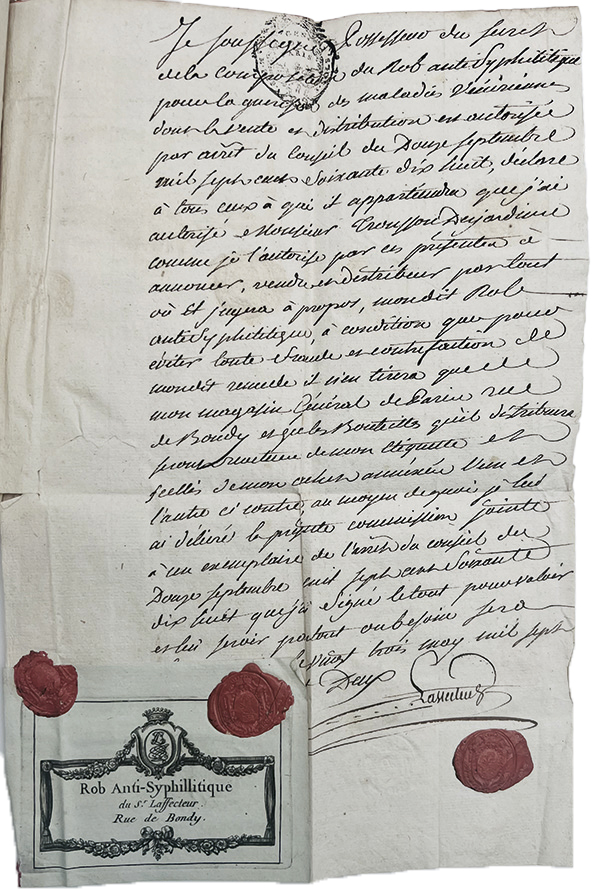 Je soussigné Possesseur du secret
de la Composition du Rob anti Syphilitique
pour la guerison des maladies Vénériennes
dont la Vente et distribution est autorisée
par arrêt du Conseil du Douze septembre
mil sept cent Soixante dix huit, déclare
à tous ceux à qui il appartiendra que j'ai
autorisé Monsieur Trousson Desjardins
comme je l'autorise par ces présentes à
annoncer, vendre et distribuer par tout
où Et jugera à propos, mondit Rob
anti Syphilitique, à condition que pour
éviter toute fraude et contrefaction de
mondit remede il n'en tirera que de
mon magasin Général de Paris rue
de Bondy et que les Bouteilles qu'il distribuera
seront revetues de mon étiquette et
scellés de mon cachet annexées l'un et
l'autre ci contre, au moyen de quoi je lui
ai délivré la présente commission jointe
à un exemplaire de l'arrêt du conseil du
Douze septembre mil sept cent Soixante
dix huit que j'ai Signé le tout pour valoir
et lui servir partout ou besoin sera
vingt trois may mil sept
Deux
Laffecteur
Rob Anti-Syphillitique
du Sr. Laffecteur.
Rue de Bondy.